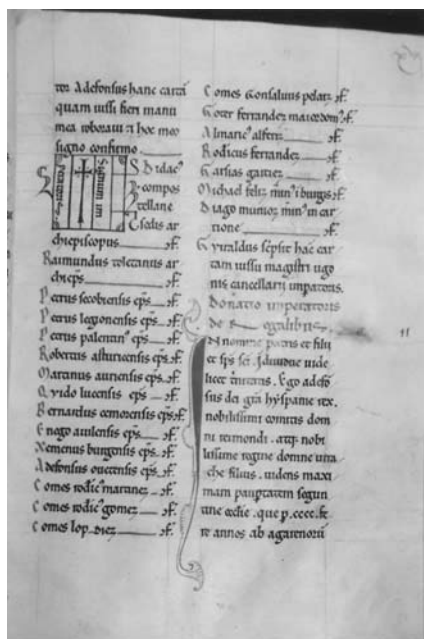 tor Adefonsus hanc cartā
quam iussi fieri manu
mea roboraui ⁊ hoc meo
signo confirmo.
Signum im
peratoris
Didac
compos
tellane
sedis ar
chiepiscopus cf.
Raimundus toletanus ar
chiep̄s
Petrus secobiensis ep̄s cf.
Petrus legionensis ep̄s cf.
Petrus palentin ep̄s cf.
Robertus asturicensis ep̄s cf.
Martinus auriensis ep̄s cf.
Guido lucensis ep̄s cf.
Bernardus cemorensis ep̄s cf.
Enego auilensis ep̄s cf.
Xemenus burgensis ep̄s cf.
Adefonsus ouetensis ep̄s cf.
Comes rodic martinez cf.
Comes rodic gomez cf.
Comes lop diez cf.
Comes Gonsaluus pelaiz cf.
Goter ferrandez maiordom cf.
Almaric alferiz cf.
Rodicus ferrandez cf.
Garsias garciez cf.
Michael feliz min̄ i burgis cf.
Diago munioz min̄ in car
rione cf.
Gyraldus sc̄psit hāc car
tam iussu magistri ugo
nis cancellarii imp̄atoris.
Donatio imperatoris
de
In nomine patris et filii
et sp̄s sc̄i. Indiuidue uide
licet trinitatis. Ego adefō
sus dei grā hyspanie rex.
nobilissimi comitis dom
ni reimondi. atq; nobi
lissime regine domne urra
che filius. uidens maxi
mam paupertatem segun
tine ecclīe. que p. cccc. &
annos ab agarenorū